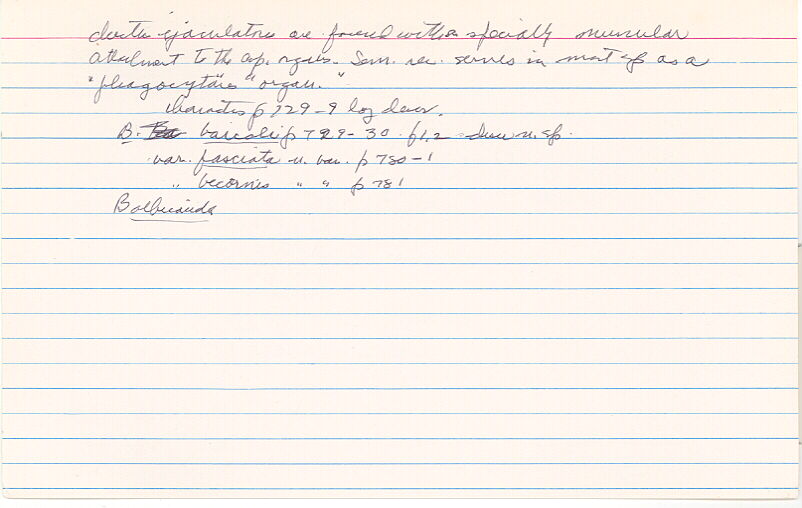 ductus ejaculatorius are found with a specially muscular
attachment to the cop. organs. Sem. rec. serves in most sp as a
"phagocytäres" organ."
characters p 729-9 log descr.
B. baicali p 729-30 f1,2 descr n. sp.
var. fasciata n. var. p 730-1
" bicornis " " p 731
B